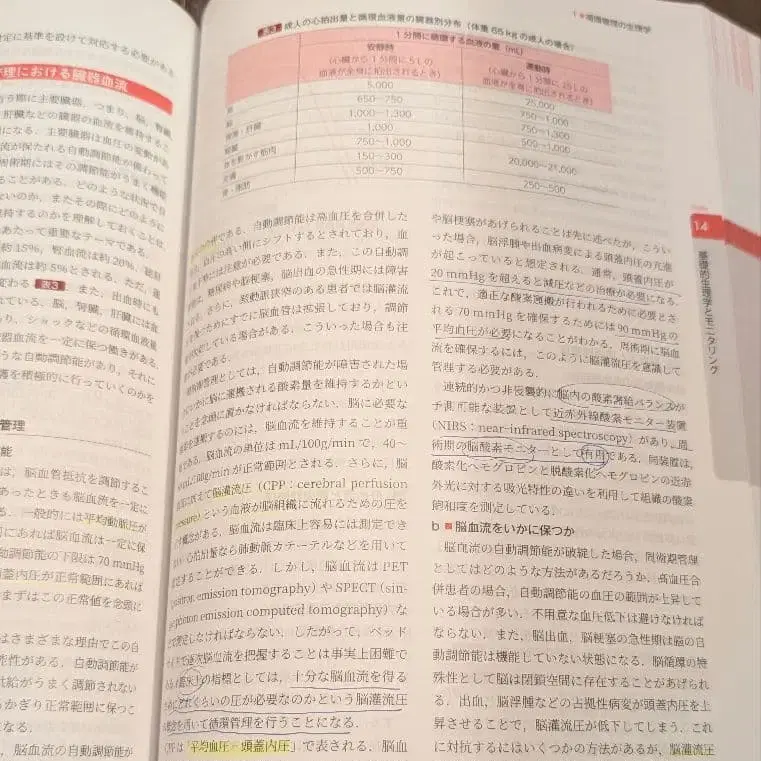 定に基準を設けて対応する必要がある
管理における臓器血流
う際に主要臓器、つまり、脳、腎臓、
肝臓などの臓器の血流を維持するこ
になる．主要臓器は血圧の変動があ
流が保たれるような自動調節能が備わって
周術期にはその調節能がうまく機能
ことがある．どのような状況で自
ないのか，またその際にどのように
維持するのかを理解しておくことは
あたって重要なテーマである．
約15%，腎血流は約20%，
血流は約5%とされる．ただ，
変わる 表3 ．また，出血時にも
れている，脳，腎臓，肝臓には
り，ショックなどの循環血液量
器血流を一定に保つ働きがある．
うな自動調節能があり，それに
護を積極的に行っていくのかを
管理
能
は，脳血管抵抗を調節するこ
あったときも脳血流を一定に
一般的には平均動脈圧が
間にあれば脳血流は一定に保
動調節能の下限は70 mmHg
頭蓋内圧が正常範囲にあれば
まずはこの正常値を念頭に
はさまざまな理由でこの自
能性がある．自動調節能が
供給がうまく調節されない
るかぎり正常範囲に保つこ
になる．
1 循環管理の生理学
成人の心拍出量と循環血液量の臓器別分布（体重65 kgの成人の場合）
1分間に循環する血液の量（mL）
安静時
（心臓から1分間に5 Lの
血液が全身に拍出されるとき）
運動時
（心臓から1分間に25 Lの
血液が全身に拍出されるとき）
5,000 25,000
脳 650～750 750～1,000
1,000～1,300 750～1,300
肝臓 1,000 500～1,000
体を動かす筋肉 750～1,000 20,000～21,000
皮膚 150～300
骨・脂肪 500～750 250～500
である．自動調節能は高血圧を合併した
血圧の高い側にシフトするとされており，血
には注意が必要である．また，この自動調
糖尿病や脳梗塞，脳出血の急性期には障害
さらに，頸動脈狭窄のある患者では脳灌流
ためにすでに脳血管は拡張しており，調節
している場合がある．こういった場合も注
必要である．
管理としては，自動調節能が障害された場
いかに脳に運搬される酸素量を維持するかとい
ことを念頭に置かなければならない．脳に必要な
を運搬するのには，脳血流を維持することが重
である．脳血流の単位はmL/100g/minで，40～
mL/100g/minが正常範囲とされる．さらに，脳
えて脳灌流圧（CPP：cerebral perfusion
pressure）という血液が脳組織に流れるための圧を
す概念がある．脳血流は臨床上容易には測定でき
い．心拍出量なら肺動脈カテーテルなどを用いて
することができる．しかし，脳血流はPET
（positron emission tomography）やSPECT（sin-
gle photon emission computed tomography）な
どで測定しなければならない．したがって，ベッド
サイドで逐次脳血流を把握することは事実上困難で
ある．臨床上の指標としては，十分な脳血流を得る
ためにどれくらいの圧が必要なのかという脳灌流圧
の概念を用いて循環管理を行うことになる．
CPPは「平均血圧－頭蓋内圧」で表される．脳血
や脳梗塞があげられることは先に述べたが，こうい
った場合，脳浮腫や出血病変による頭蓋内圧の亢進
が起こっていると想定される．通常，頭蓋内圧が
20 mmHgを超えると減圧などの治療が必要になる．
これで，適正な酸素運搬が行われるために必要とさ
れる70 mmHgを確保するためには90 mmHgの
平均血圧が必要になることがわかる．周術期に脳血
流を確保するには，このように脳灌流圧を意識して
管理する必要がある．
連続的かつ非侵襲的に脳内の酸素需給バランスが
予測可能な装置として近赤外線酸素モニター装置
（NIBS：near-infrared spectroscopy）があり，周
術期の脳酸素モニターとして有用である．同装置は，
酸素化ヘモグロビンと脱酸素化ヘモグロビンの近赤
外光に対する吸光特性の違いを利用して組織の酸素
飽和度を測定している．
b 脳血流をいかに保つか
脳血流の自動調節能が破綻した場合，周術期管理
としてはどのような方法があるだろうか．高血圧合
併患者の場合，自動調節能の血圧の範囲が上昇して
いる場合が多い．不用意な血圧低下は避けなければ
ならない．また，脳出血，脳梗塞の急性期は脳の自
動調節能は機能していない状態になる．脳循環の特
殊性として脳は閉鎖空間に存在することがあげられ
る．出血，脳浮腫などの占拠性病変が頭蓋内圧を上
昇させることで，脳灌流圧が低下してしまう．これ
に対抗するにはいくつかの方法があるが，脳灌流圧
14
基礎的生理学とモニタリング